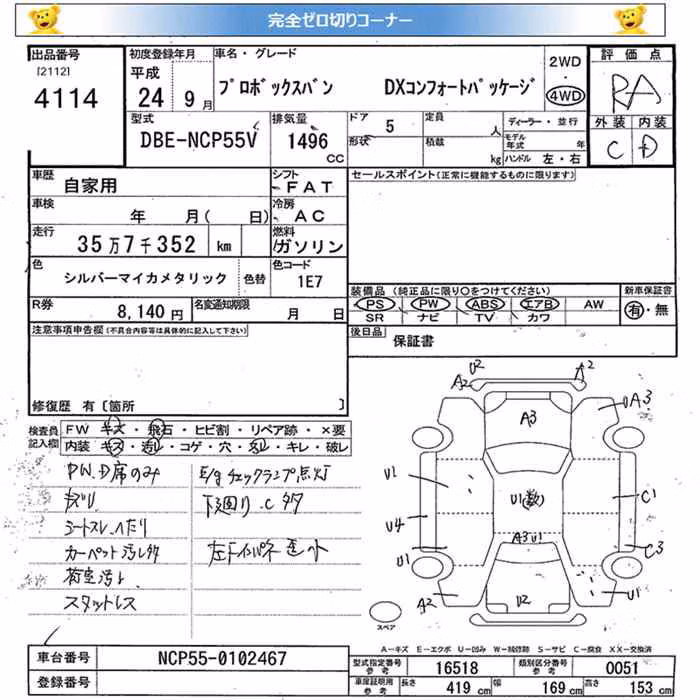 完全ゼロ切りコーナー
出品番号
[2112]
4114
初度登録年月
平成
24年 9月
車名・グレード
プロボックスバン DXコンフォートパッケージ
2WD
・
4WD
評価点
RA
型式
DBE-NCP55V
排気量
1496 CC
ドア 5
形状
定員 人
積載 kg
ディーラー・並行
モデル年式 年
ハンドル 左・右
外装 内装
C D
車歴
自家用
シフト
FAT
セールスポイント(正常に機能するものに限ります)
車検
年 月( 日)
冷房
AC
走行
35万7千352 km
燃料
ガソリン
色
シルバーマイカメタリック
色替
色コード
1E7
装備品(純正品に限り○をつけてください)
新車保証書
PS PW ABS エアB AW
有・無
SR ナビ TV カワ
R券
8,140円
名変通知期限
月 日
後日品
保証書
注意事項申告欄(不具合内容等は具体的に記入して下さい)
修復歴 有〔箇所 〕
検査員記入欄
FW キズ・飛石・ヒビ割・リペア跡・×要
内装 キズ・汚レ・コゲ・穴・スレ・キレ・破レ
PW、D席のみ
E/gチェックランプ点灯
キズU
下廻り、C タタ
シートスレ、ヘたり
カーペット汚レタタ
荷室汚レ
スタットレス
U2
A2
A2
A3
UA3
U1
U1(数)
C1
U4
A3 U1
U1
C3
A2
U2
U1
スペア
A-キズ E-エクボ U-凹み W-補修跡 S-サビ C-腐食 XX-交換済
車台番号
NCP55-0102467
登録番号
型式指定番号 参考
16518
類別区分番号 参考
0051
車庫証明用 参考
長さ 419 cm
幅 169 cm
高さ 153 cm